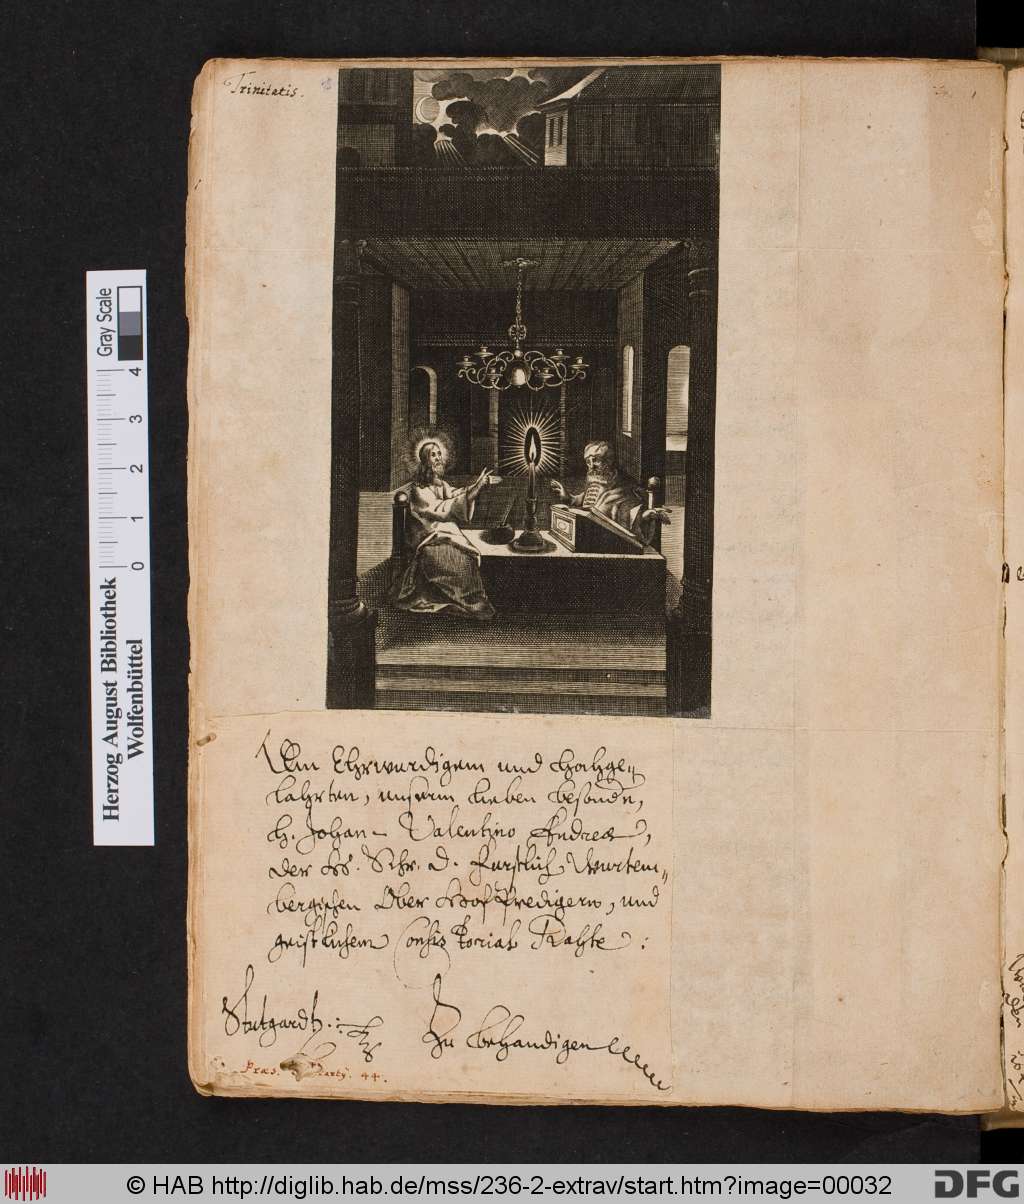 Trinitatis.
Dem Ehrwurdigem und Hochge-
lahrten, unserm lieben besonder,
H. Johan Valentino Andreæ,
der H. Schr. D. Furstlich Wurtem-
bergischen Ober Hof Predigern, und
geistlichem Consistorial Rahte:
Stutgardt.:
Zu behandigen
Præs. Marty. 44.
Gray Scale
0 1 2 3 4
Herzog August Bibliothek
Wolfenbüttel
© HAB http://diglib.hab.de/mss/236-2-extrav/start.htm?image=00032
DFG